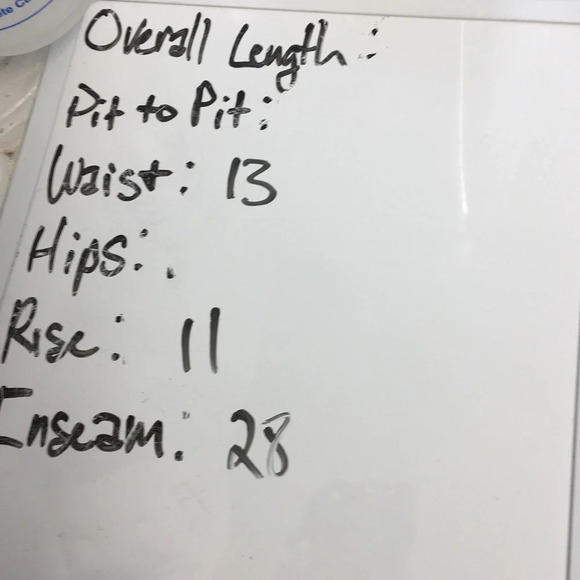 Overall Length:
Pit to Pit:
Waist: 13
Hips: .
Rise: 11
Inseam: 28